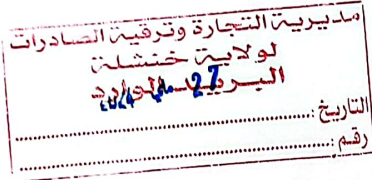 مديرية التجارة وترقية الصادرات
لولاية خنشلة
البريد الوارد
27
التاريخ:
رقم: